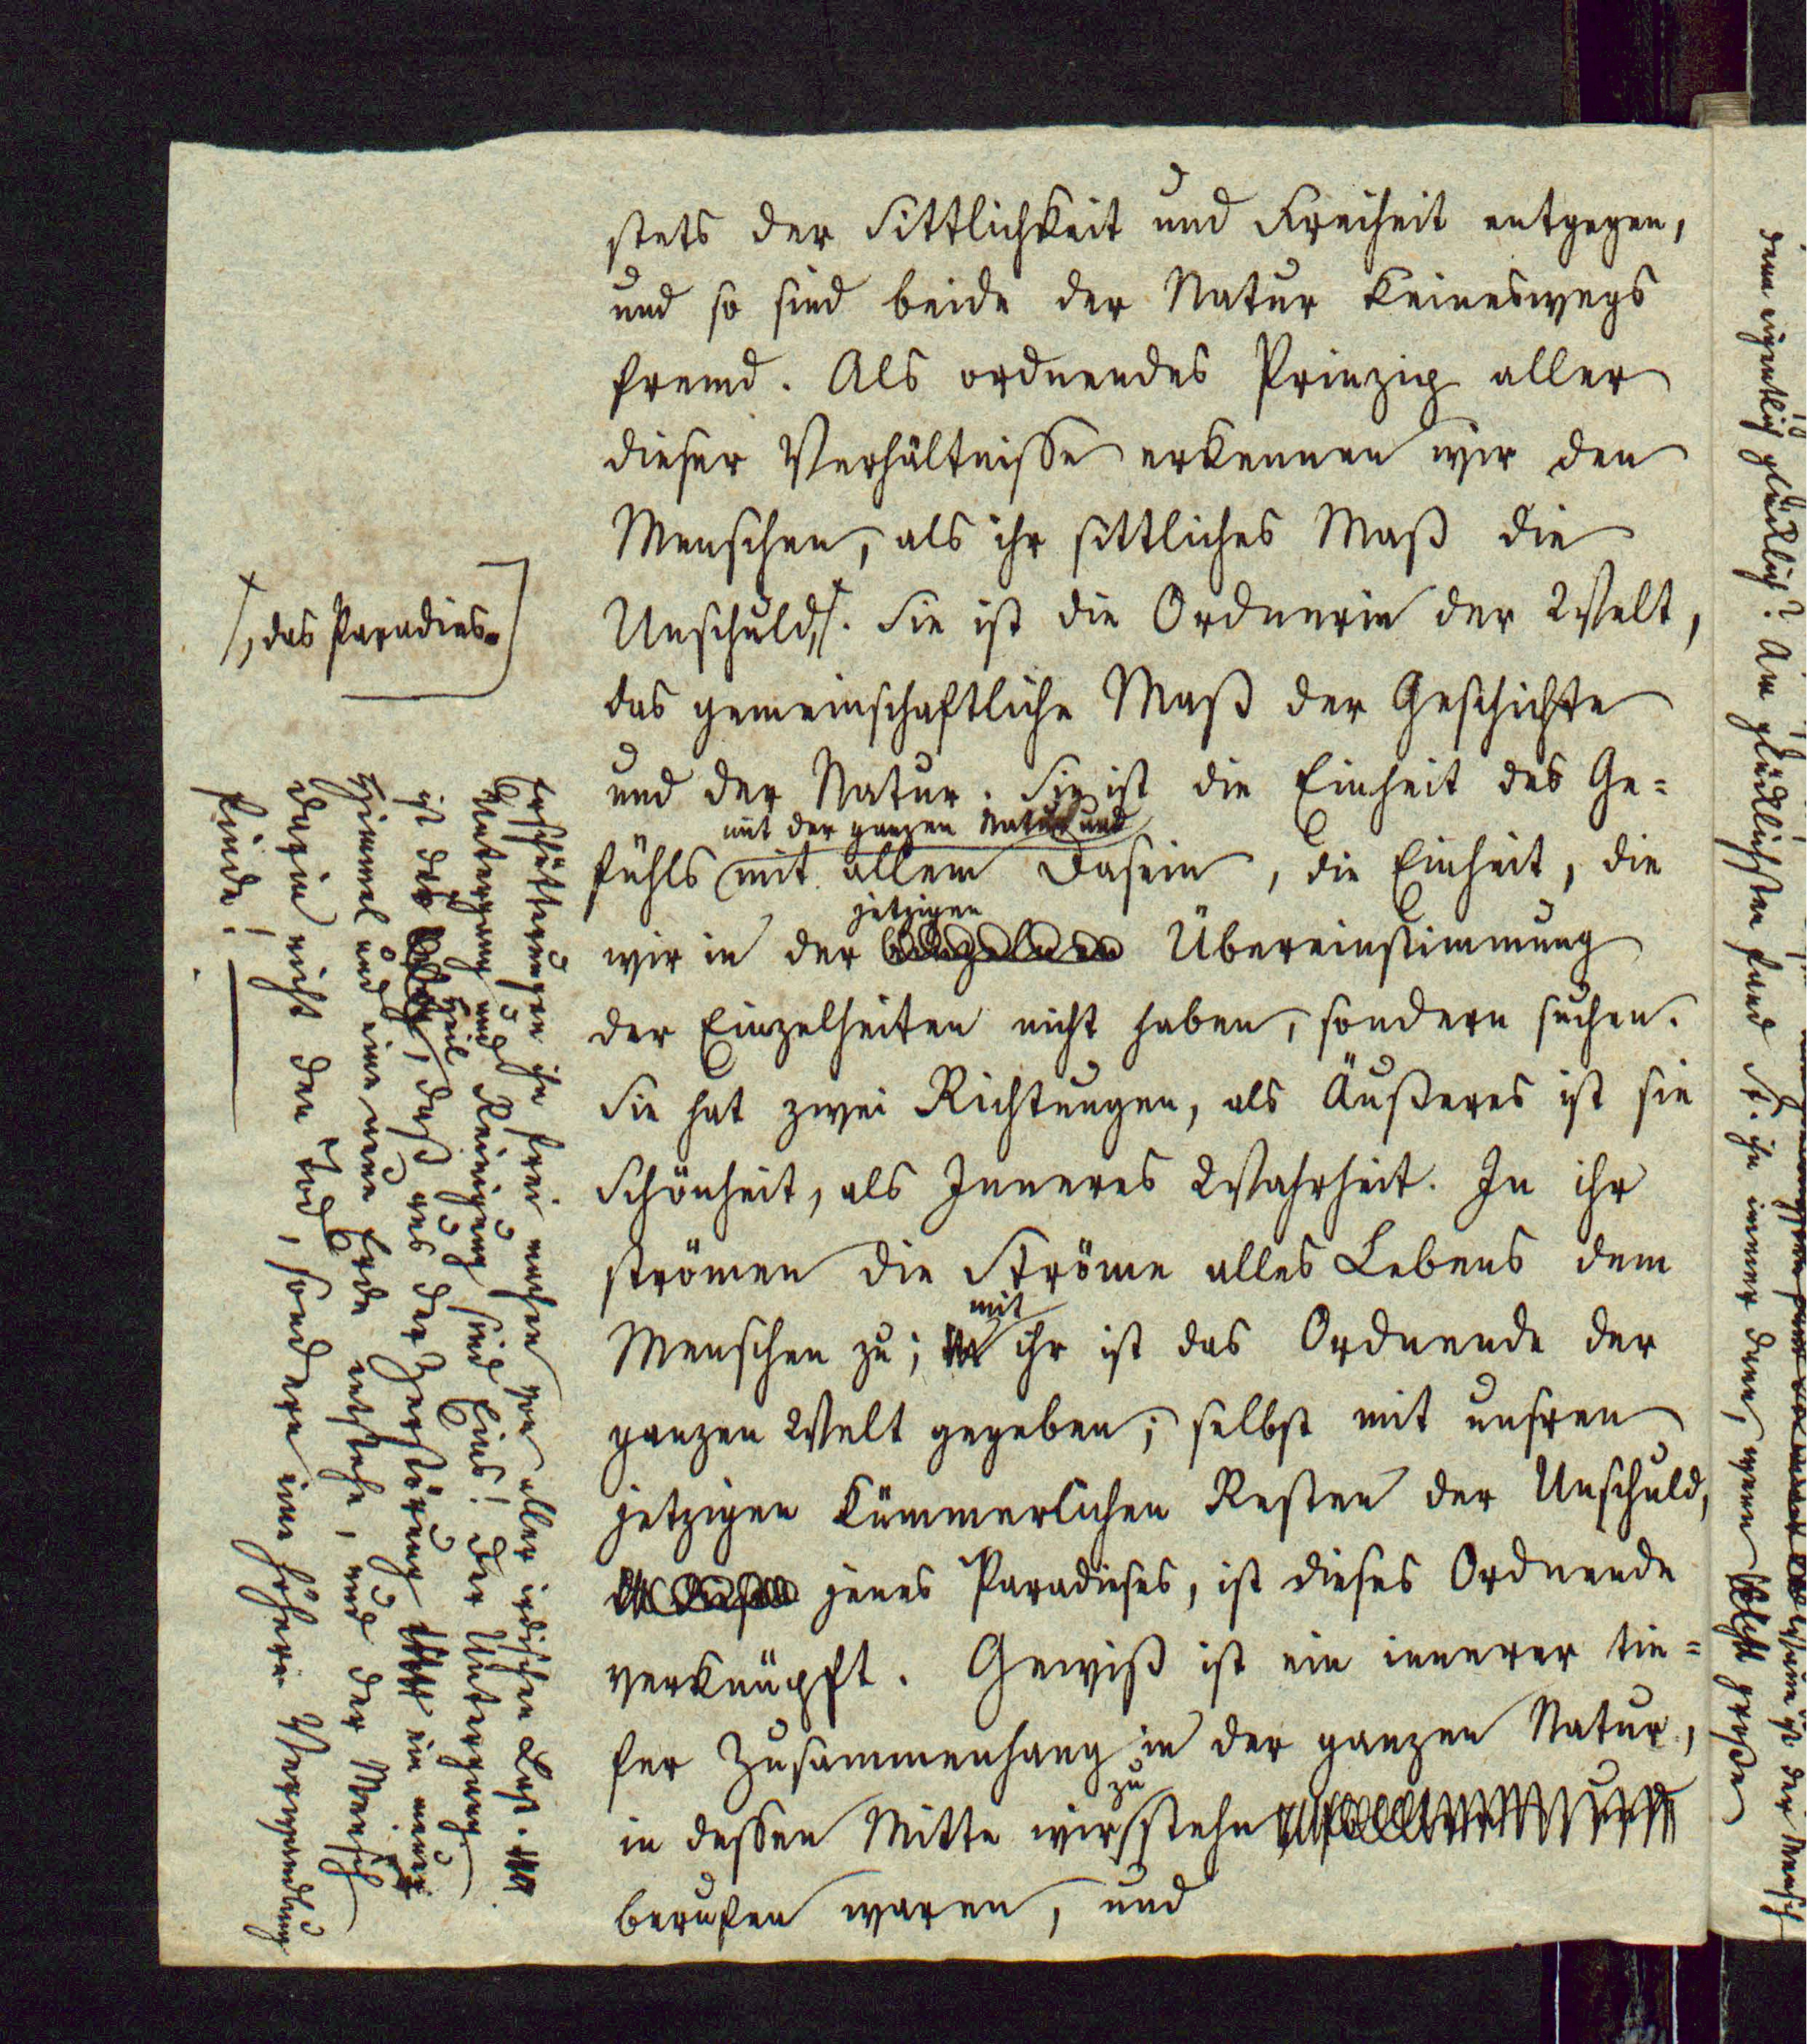 stets der Sittlichkeit und Freiheit entgegen,
und so sind beide der Natur keineswegs
fremd. Als ordnendes Prinzip aller
dieser Verhältnisse erkennen wir den
Menschen, als ihr sittliches Maß die
Unschuld,. Sie ist die Ordnerin der Welt,
das gemeinschaftliche Maß der Geschichte
und der Natur. Sie ist die Einheit des Ge=
mit der ganzen Natur und
fühls mit allem Dasein, die Einheit, die
jetzigen
wir in der Übereinstimmung
der Einzelheiten nicht haben, sondern suchen.
Sie hat zwei Richtungen, als Äußeres ist sie
Schönheit, als Inneres Wahrheit. In ihr
strömen die Ströme alles Lebens dem
mit
Menschen zu; ihr ist das Ordnende der
ganzen Welt gegeben; selbst mit unsren
jetzigen kümmerlichen Resten der Unschuld,
jenes Paradieses, ist dieses Ordnende
verknüpft. Gewiß ist ein innerer tie=
fer Zusammenhang in der ganzen Natur,
zu
in dessen Mitte wir stehn
berufen waren, und
, das Paradies.
Erschütterungen ihn frei machen von aller irdischen Last.
Untergang und Reinigung sind Eins! Der Untergang
ist das Heil, daß aus der Zerstörung ein neuer
Himmel und eine neue Erde entstehe, und der Mensch
darin nicht den Tod, sondern eine höhere Verwandlung
finde!
denn eigentlich glücklich? Am glücklichsten fand St. ihn immer dann, wenn
der Mensch